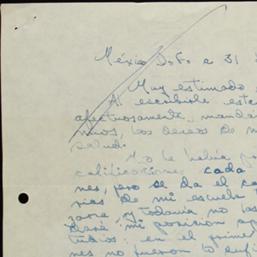 México D.F. a 31
Muy estimado
Al escribirle este
afectuosamente, mandán
nirles, los deseos de m
salud.
No le había po
calificaciones, cada
nes, pero se da el ca
rias de mi escuela
zarse y todavía no las
clase mi posición
tudios: en el primer
nes no fueron to